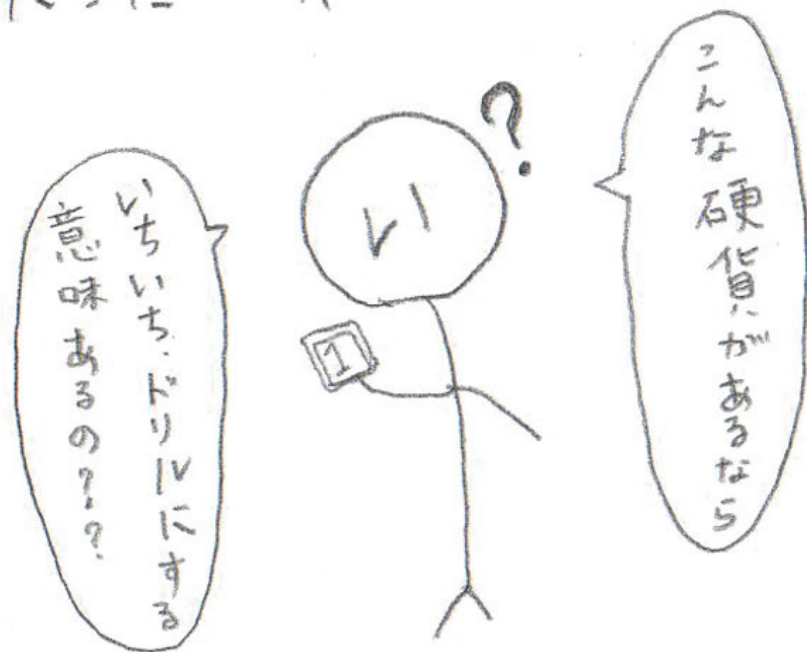 こんな硬貨があるなら
?
い
1
いちいち、ドリルにする
意味あるの??